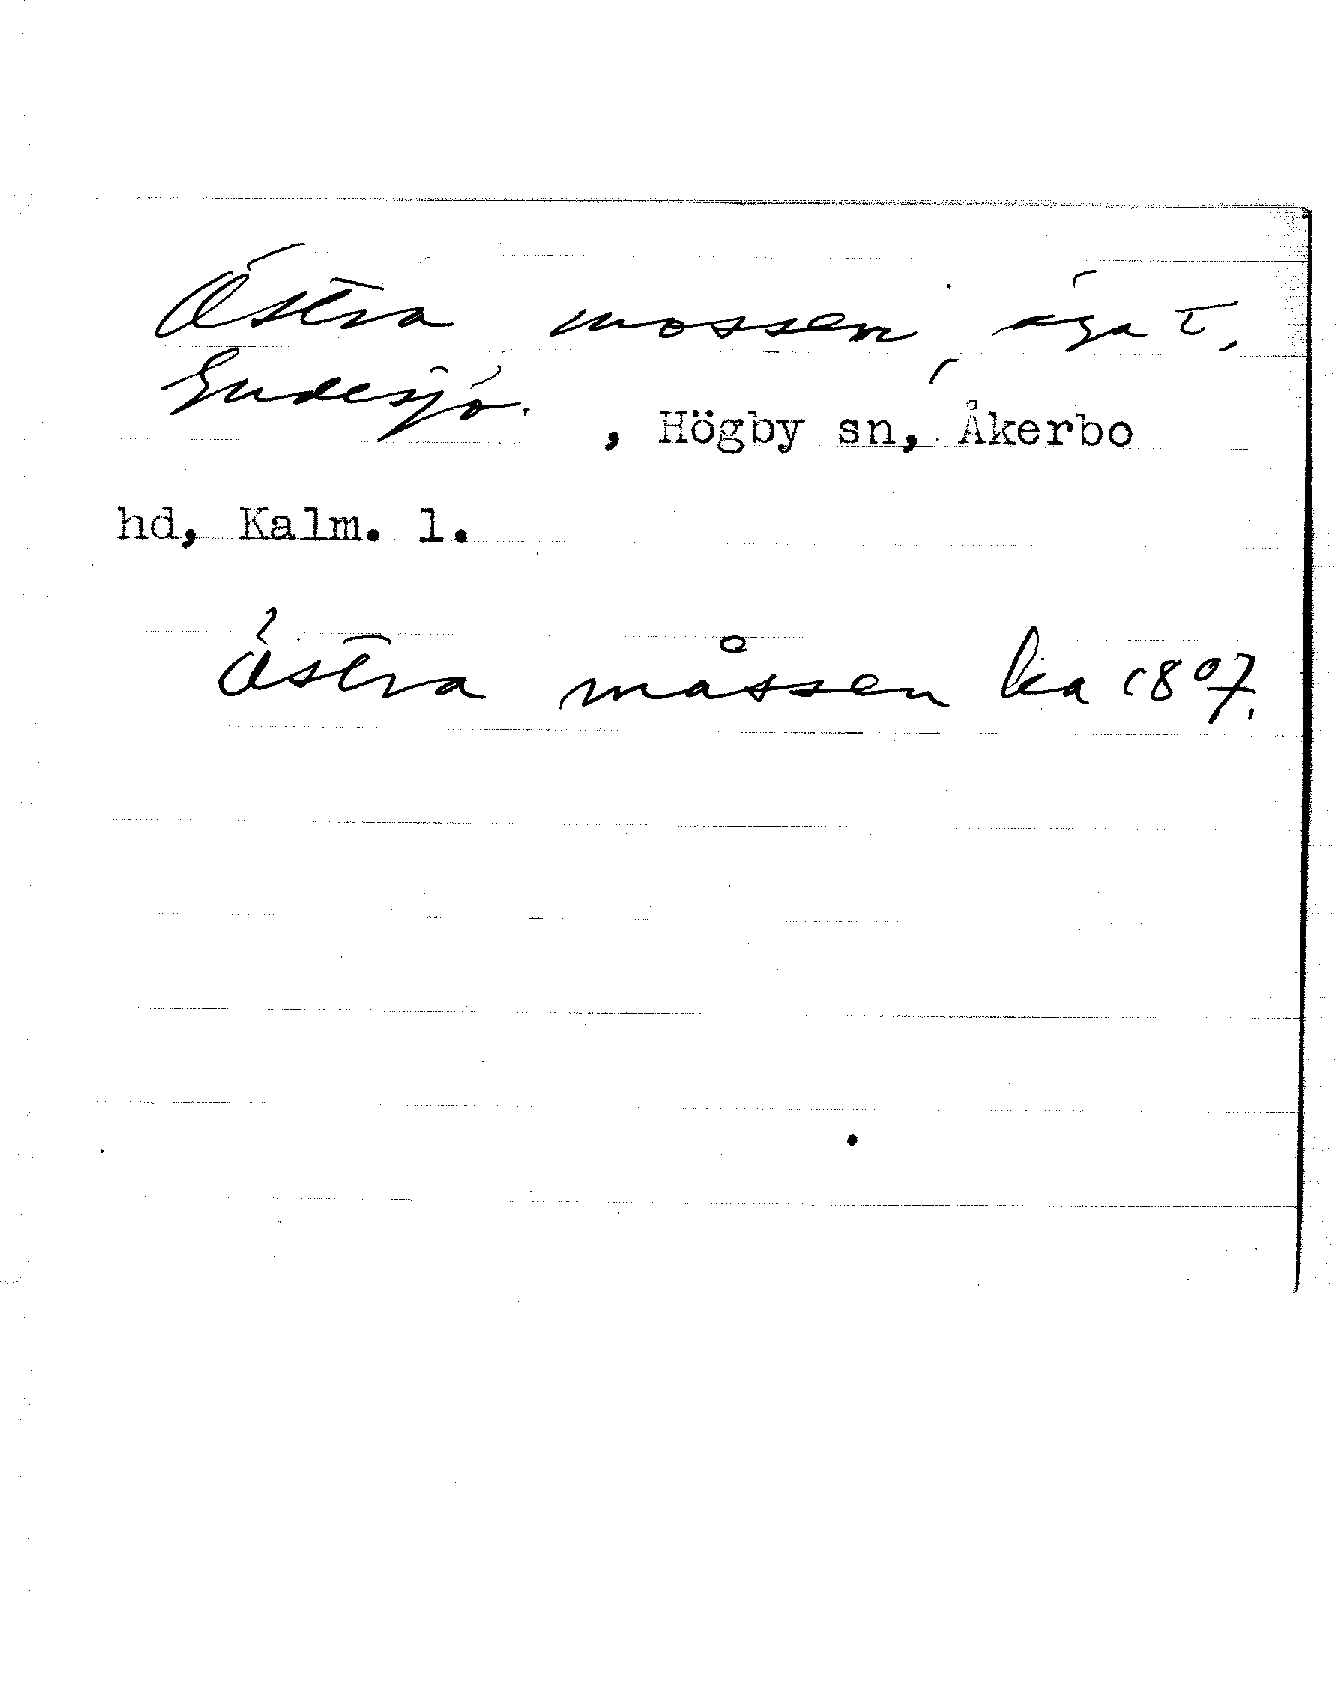 Östra mossen, äga t.
Gudesjö.
, Högby sn, Åkerbo
hd, Kalm. l.
Östra måssen ha 1807.